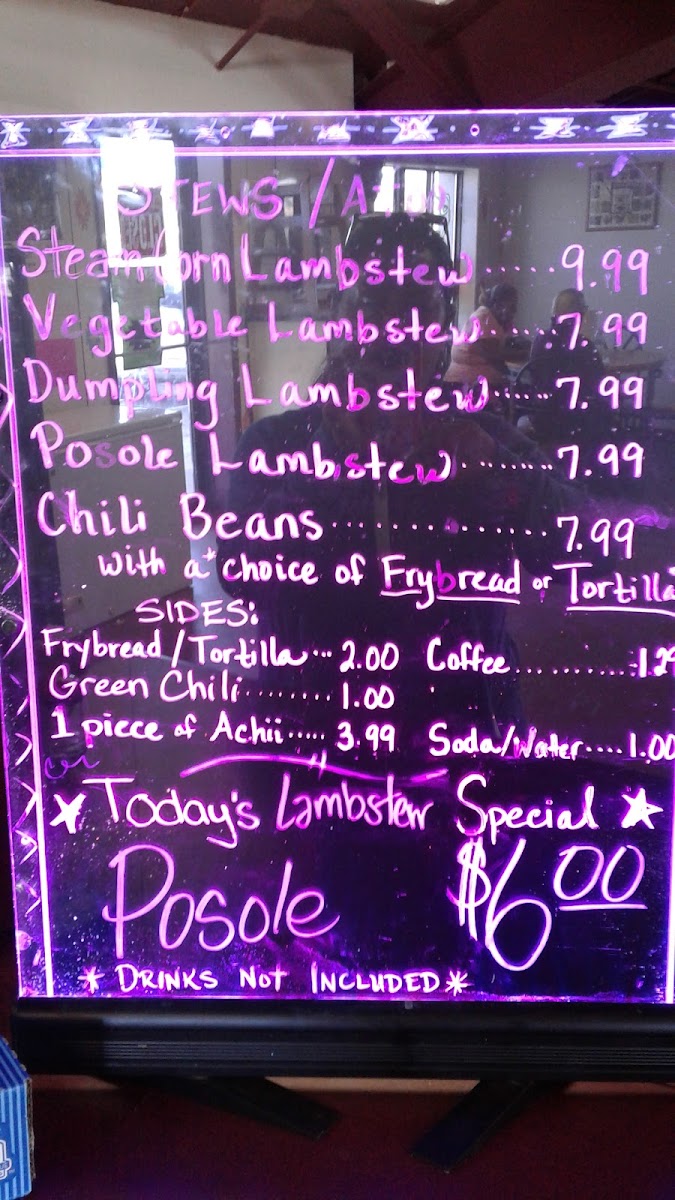 STEWS / Atoo
Steam Corn Lambstew ...... 9.99
Vegetable Lambstew ...... 7.99
Dumpling Lambstew ...... 7.99
Posole Lambstew ........ 7.99
Chili Beans ............... 7.99
with a* choice of Frybread or Tortilla
SIDES:
Frybread/Tortilla ... 2.00 Coffee ..........
Green Chili ........ 1.00
1 piece of Achii ..... 3.99 Soda/Water .... 1.00
☆ Today's Lambstew Special ☆
Posole $6.00
* DRINKS NOT INCLUDED *